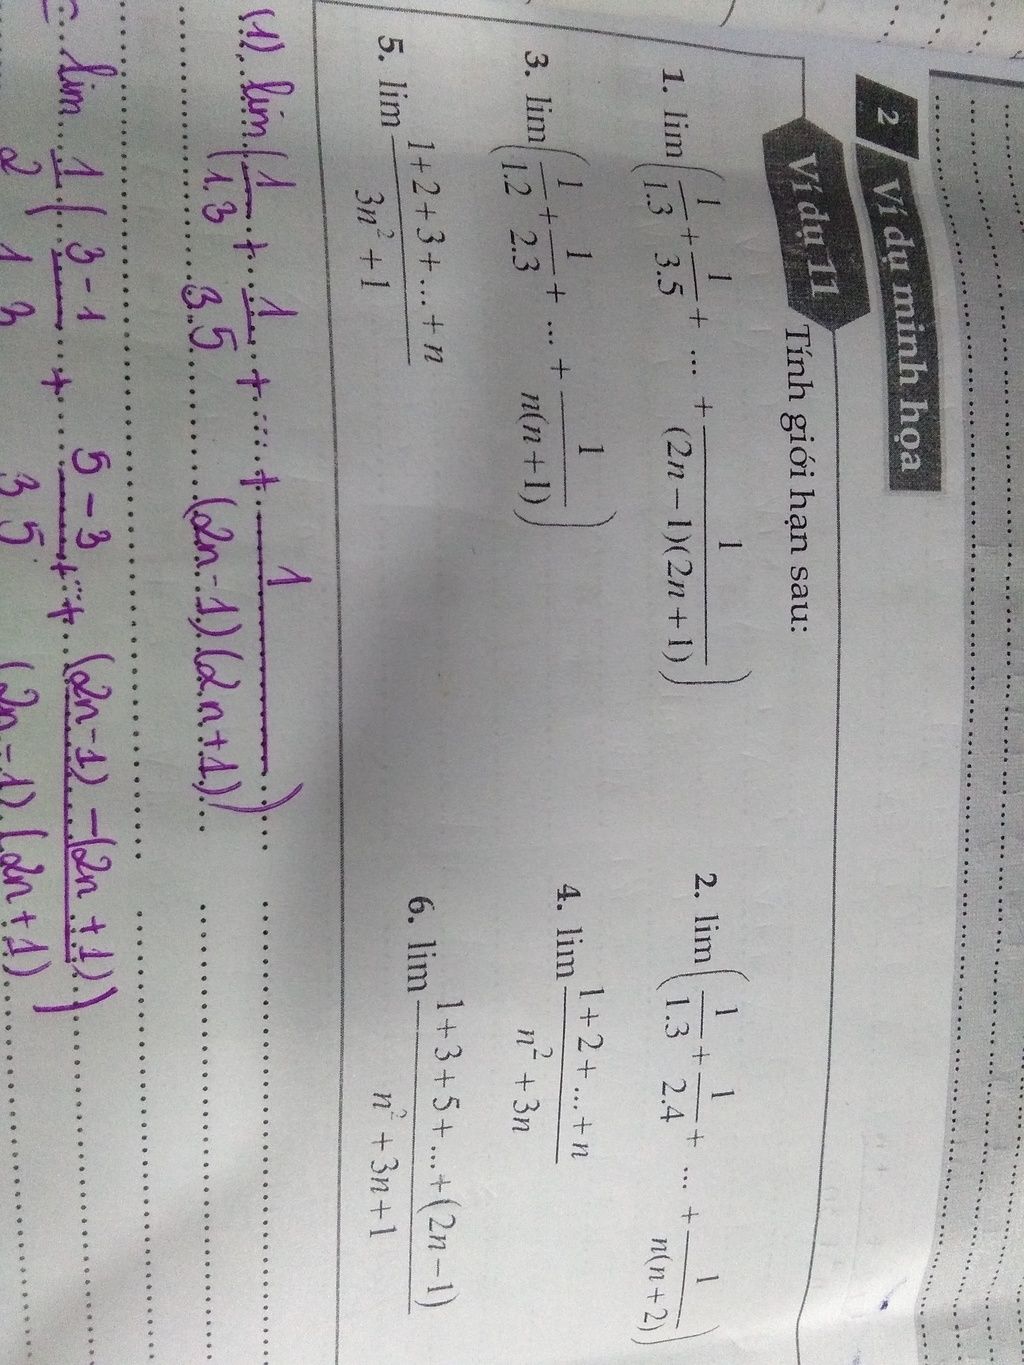 2 Ví dụ minh họa
Ví dụ 11 Tính giới hạn sau:
1. lim(1/1.3 + 1/3.5 + ... + 1/(2n−1)(2n+1))
2. lim(1/1.3 + 1/2.4 + ... + 1/n(n+2))
3. lim(1/1.2 + 1/2.3 + ... + 1/n(n+1))
4. lim 1+2+...+n / n²+3n
5. lim 1+2+3+...+n / 3n²+1
6. lim 1+3+5+...+(2n−1) / n²+3n+1
(1). lim(1/1.3 + 1/3.5 + ... + 1/(2n-1)(2n+1))
= lim 1/2 (3-1/1 3 + 5-3/3 5 + ... + (2n-1)-(2n+1)/(2n-1)(2n+1))